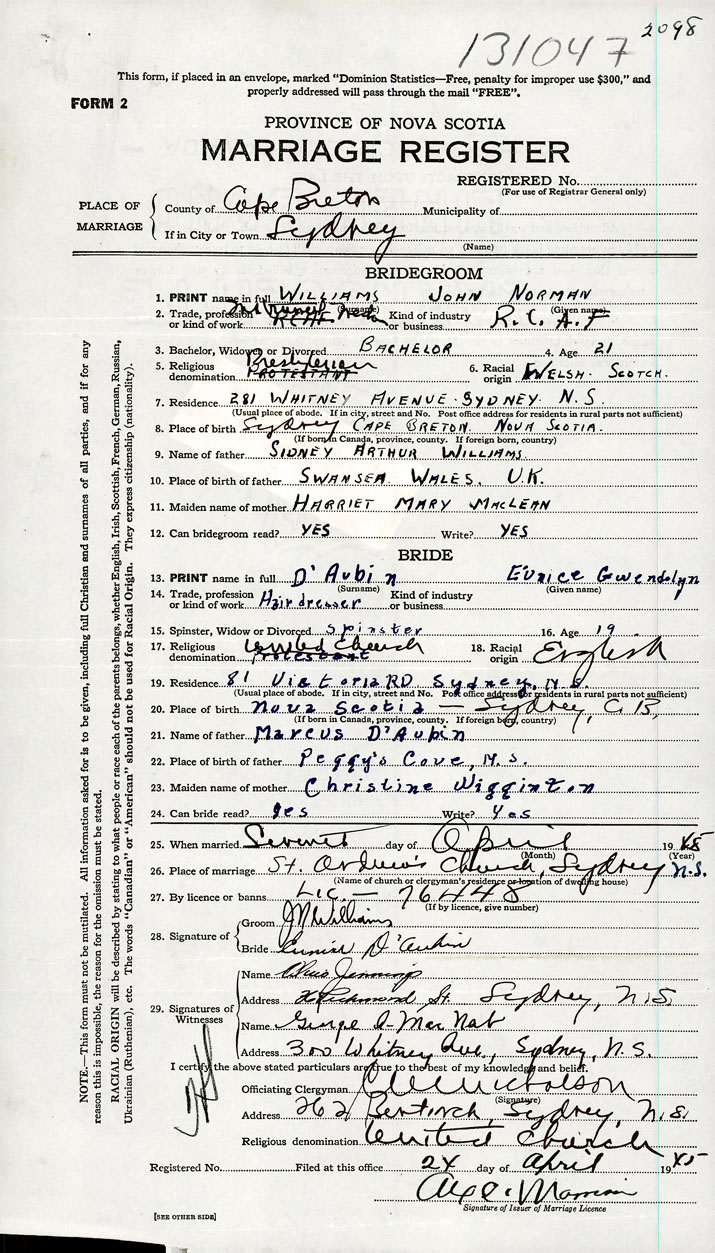 2098
131047
This form, if placed in an envelope, marked "Dominion Statistics—Free, penalty for improper use $300," and
properly addressed will pass through the mail "FREE".
FORM 2
PROVINCE OF NOVA SCOTIA
MARRIAGE REGISTER
REGISTERED No.
(For use of Registrar General only)
PLACE OF MARRIAGE
County of Cape Breton Municipality of
If in City or Town Sydney
(Name)
BRIDEGROOM
1. PRINT name in full WILLIAMS JOHN NORMAN
(Surname) (Given name)
2. Trade, profession or kind of work RCAF Tech Kind of industry or business R.C.A.F
3. Bachelor, Widower or Divorced BACHELOR 4. Age 21
5. Religious denomination Presbyterian PROTESTANT 6. Racial origin WELSH-SCOTCH.
7. Residence 281 WHITNEY AVENUE-SYDNEY. N.S.
(Usual place of abode. If in city, street and No. Post office address for residents in rural parts not sufficient)
8. Place of birth Sydney CAPE BRETON NOVA SCOTIA.
(If born in Canada, province, county. If foreign born, country)
9. Name of father SIDNEY ARTHUR WILLIAMS.
10. Place of birth of father SWANSEA WALES. U.K.
11. Maiden name of mother HARRIET MARY MACLEAN
12. Can bridegroom read? YES Write? YES
BRIDE
13. PRINT name in full D'Aubin Eunice Gwendolyn
(Surname) (Given name)
14. Trade, profession or kind of work Hairdresser Kind of industry or business
15. Spinster, Widow or Divorced Spinster 16. Age 19
17. Religious denomination United Church Protestant 18. Racial origin English
19. Residence 81 Victoria RD Sydney, N.S.
(Usual place of abode. If in city, street and No. Post office address for residents in rural parts not sufficient)
20. Place of birth Nova Scotia — Sydney, C.B.
(If born in Canada, province, county. If foreign born, country)
21. Name of father Marcus D'Aubin
22. Place of birth of father Peggy's Cove, N.S.
23. Maiden name of mother Christine Wiggington
24. Can bride read? yes Write? Yes
25. When married Seventh day of April 1945
(Month) (Year)
26. Place of marriage St. Andrew's Church, Sydney N.S.
(Name of church or clergyman's residence or location of dwelling house)
27. By licence or banns Lic. — 76448
(If by licence, give number)
28. Signature of
Groom JNWilliams
Bride Eunice D'Aubin
29. Signatures of Witnesses
Name Jennings
Address Richmond St. Sydney, N.S.
Name George
Address 300 Whitney Ave., Sydney, N.S.
I certify the above stated particulars are true to the best of my knowledge and belief.
Officiating Clergyman Nicholson
(Signature)
Address 262 Bentinck, Sydney, N.S.
Religious denomination United Church
Registered No. Filed at this office 24 day of April 1945
Signature of Issuer of Marriage Licence
[SEE OTHER SIDE]
NOTE.—This form must not be mutilated. All information asked for is to be given, including full Christian and surnames of all parties, and if for any
reason this is impossible, the reason for the omission must be stated.
RACIAL ORIGIN will be described by stating to what people or race each of the parents belongs, whether English, Irish, Scottish, French, German, Russian,
Ukrainian (Ruthenian), etc. The words "Canadian" or "American" should not be used for Racial Origin. They express citizenship (nationality).